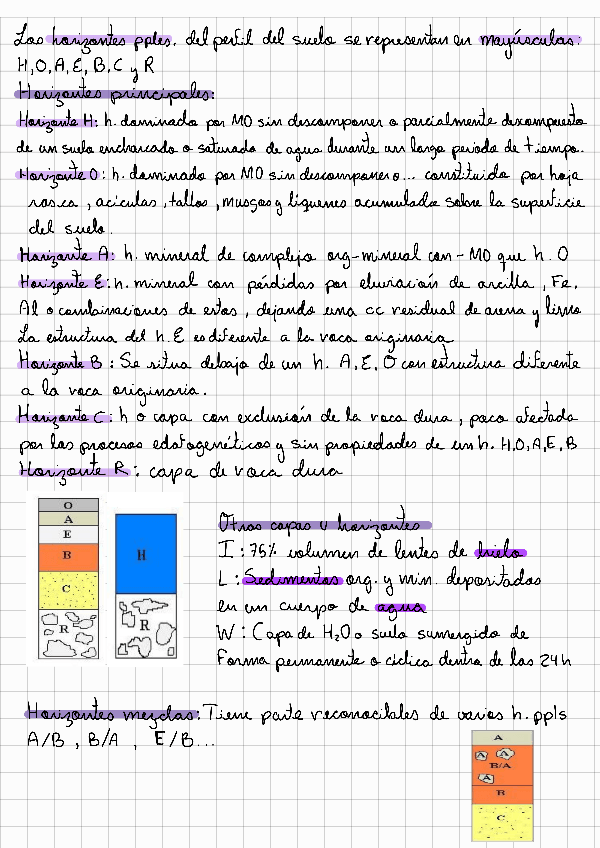 Los horizontes pples. del perfil del suelo se representan en mayúsculas:
H, O, A, E, B, C y R
Horizontes principales:
Horizonte H: h. dominado por MO sin descomponer o parcialmente descompuesto
de un suelo encharcado o saturado de agua durante un largo periodo de tiempo.
Horizonte O: h. dominado por MO sin descomponer o... constituido por hoja
rasca, acículas, tallos, musgos y líquenes acumulada sobre la superficie
del suelo.
Horizonte A: h. mineral de complejo org-mineral con - MO que h. O
Horizonte E: h. mineral con pérdidas por eluviación de arcilla, Fe,
Al o combinaciones de estos, dejando una cc residual de arena y limo
La estructura del h. E es diferente a la roca originaria
Horizonte B: Se situa debajo de un h. A, E, O con estructura diferente
a la roca originaria.
Horizonte C: h o capa con exclusión de la roca dura, poco afectada
por los procesos edafogenéticos y sin propiedades de un h. H, O, A, E, B
Horizonte R: capa de roca dura
O
A
E
B
C
R
H
R
Otras capas u horizontes
I: 75% volumen de lentes de hielo
L: Sedimentos org. y min. depositados
en un cuerpo de agua
W: Capa de H₂O o suelo sumergido de
forma permanente o cíclica dentro de las 24h
Horizontes mezclas: Tiene parte reconocibles de varios h. ppls
A/B, B/A, E/B...
A
A A
B/A
A
B
C